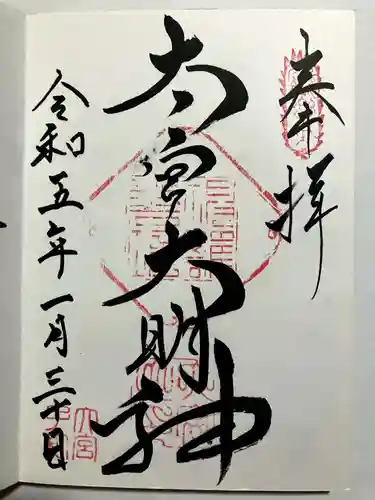 奉拝
大宮大明神
令和五年一月三十日